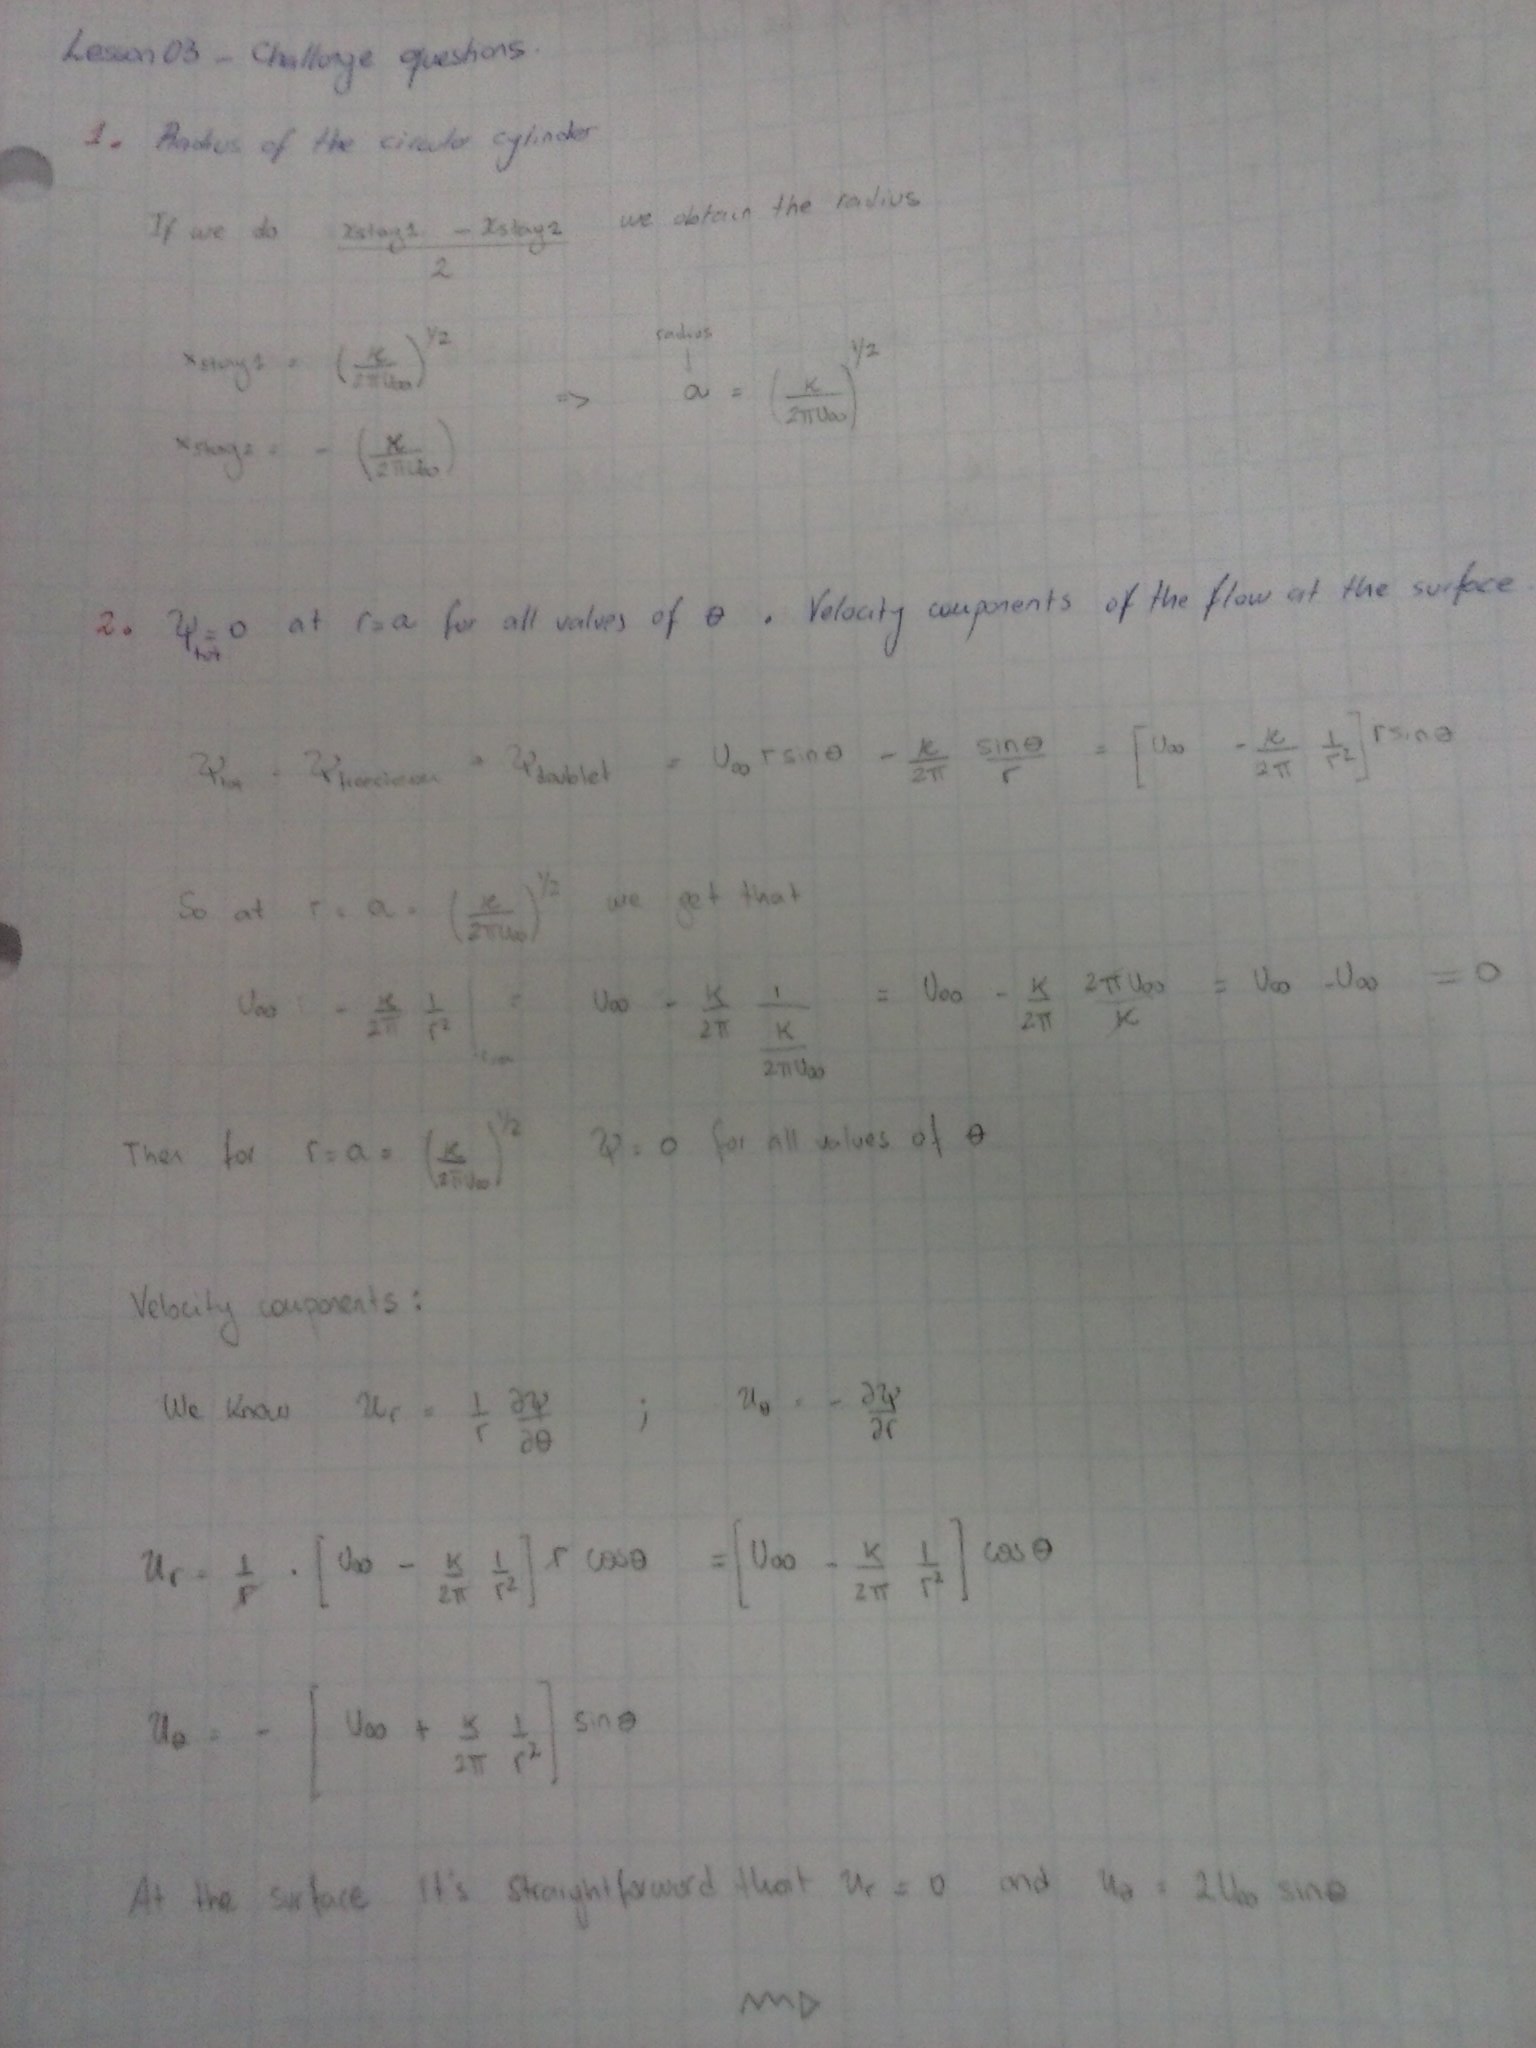 Lesson 03 - Challenge questions.
1. Radius of the circular cylinder
If we do (xstag1 - xstag2)/2 we obtain the radius
xstag1 = (κ/2πU∞)^1/2 => radius a = (κ/2πU∞)^1/2
xstag2 = - (κ/2πU∞)
2. ψtot = 0 at r=a for all values of θ. Velocity components of the flow at the surface.
ψtot = ψfreestream + ψdoublet = U∞ r sinθ - κ/2π sinθ/r = [U∞ - κ/2π 1/r²] r sinθ
So at r = a = (κ/2πU∞)^1/2 we get that
U∞ - κ/2π 1/r² |r=a = U∞ - κ/2π 1/(κ/2πU∞) = U∞ - κ/2π 2πU∞/κ = U∞ - U∞ = 0
Then for r = a = (κ/2πU∞)^1/2 ψ = 0 for all values of θ
Velocity components:
We know ur = 1/r ∂ψ/∂θ ; uθ = - ∂ψ/∂r
ur = 1/r · [U∞ - κ/2π 1/r²] r cosθ = [U∞ - κ/2π 1/r²] cosθ
uθ = - [U∞ + κ/2π 1/r²] sinθ
At the surface it's straightforward that ur = 0 and uθ = 2U∞ sinθ